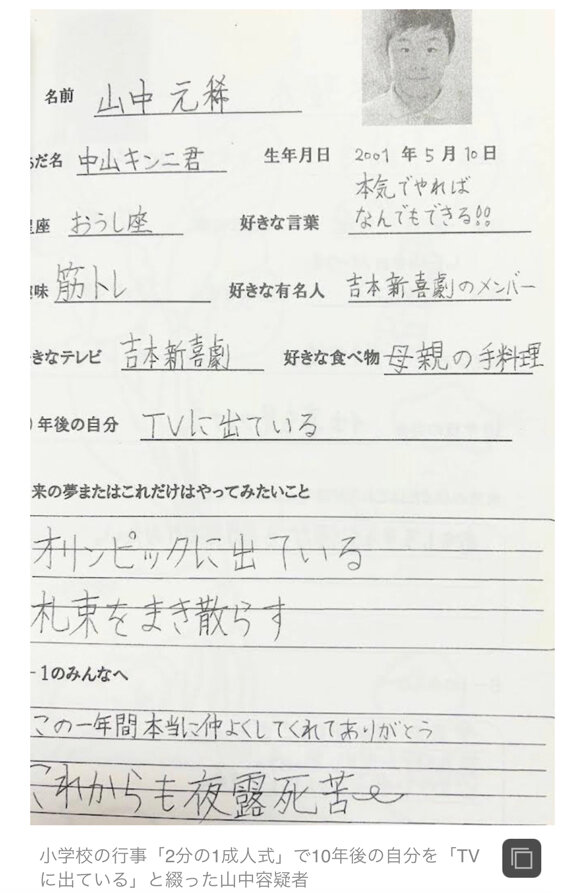 名前 山中 元稀
だ名 中山キンニ君 生年月日 2001 年 5 月 10 日
座 おうし座 好きな言葉 本気でやれば
なんでもできる!!
味 筋トレ 好きな有名人 吉本新喜劇のメンバー
きなテレビ 吉本新喜劇 好きな食べ物 母親の手料理
年後の自分 TVに出ている
来の夢またはこれだけはやってみたいこと
オリンピックに出ている
札束をまき散らす
-1のみんなへ
この一年間本当に仲よくしてくれてありがとう
これからも夜露死苦
小学校の行事「2分の1成人式」で10年後の自分を「TV
に出ている」と綴った山中容疑者